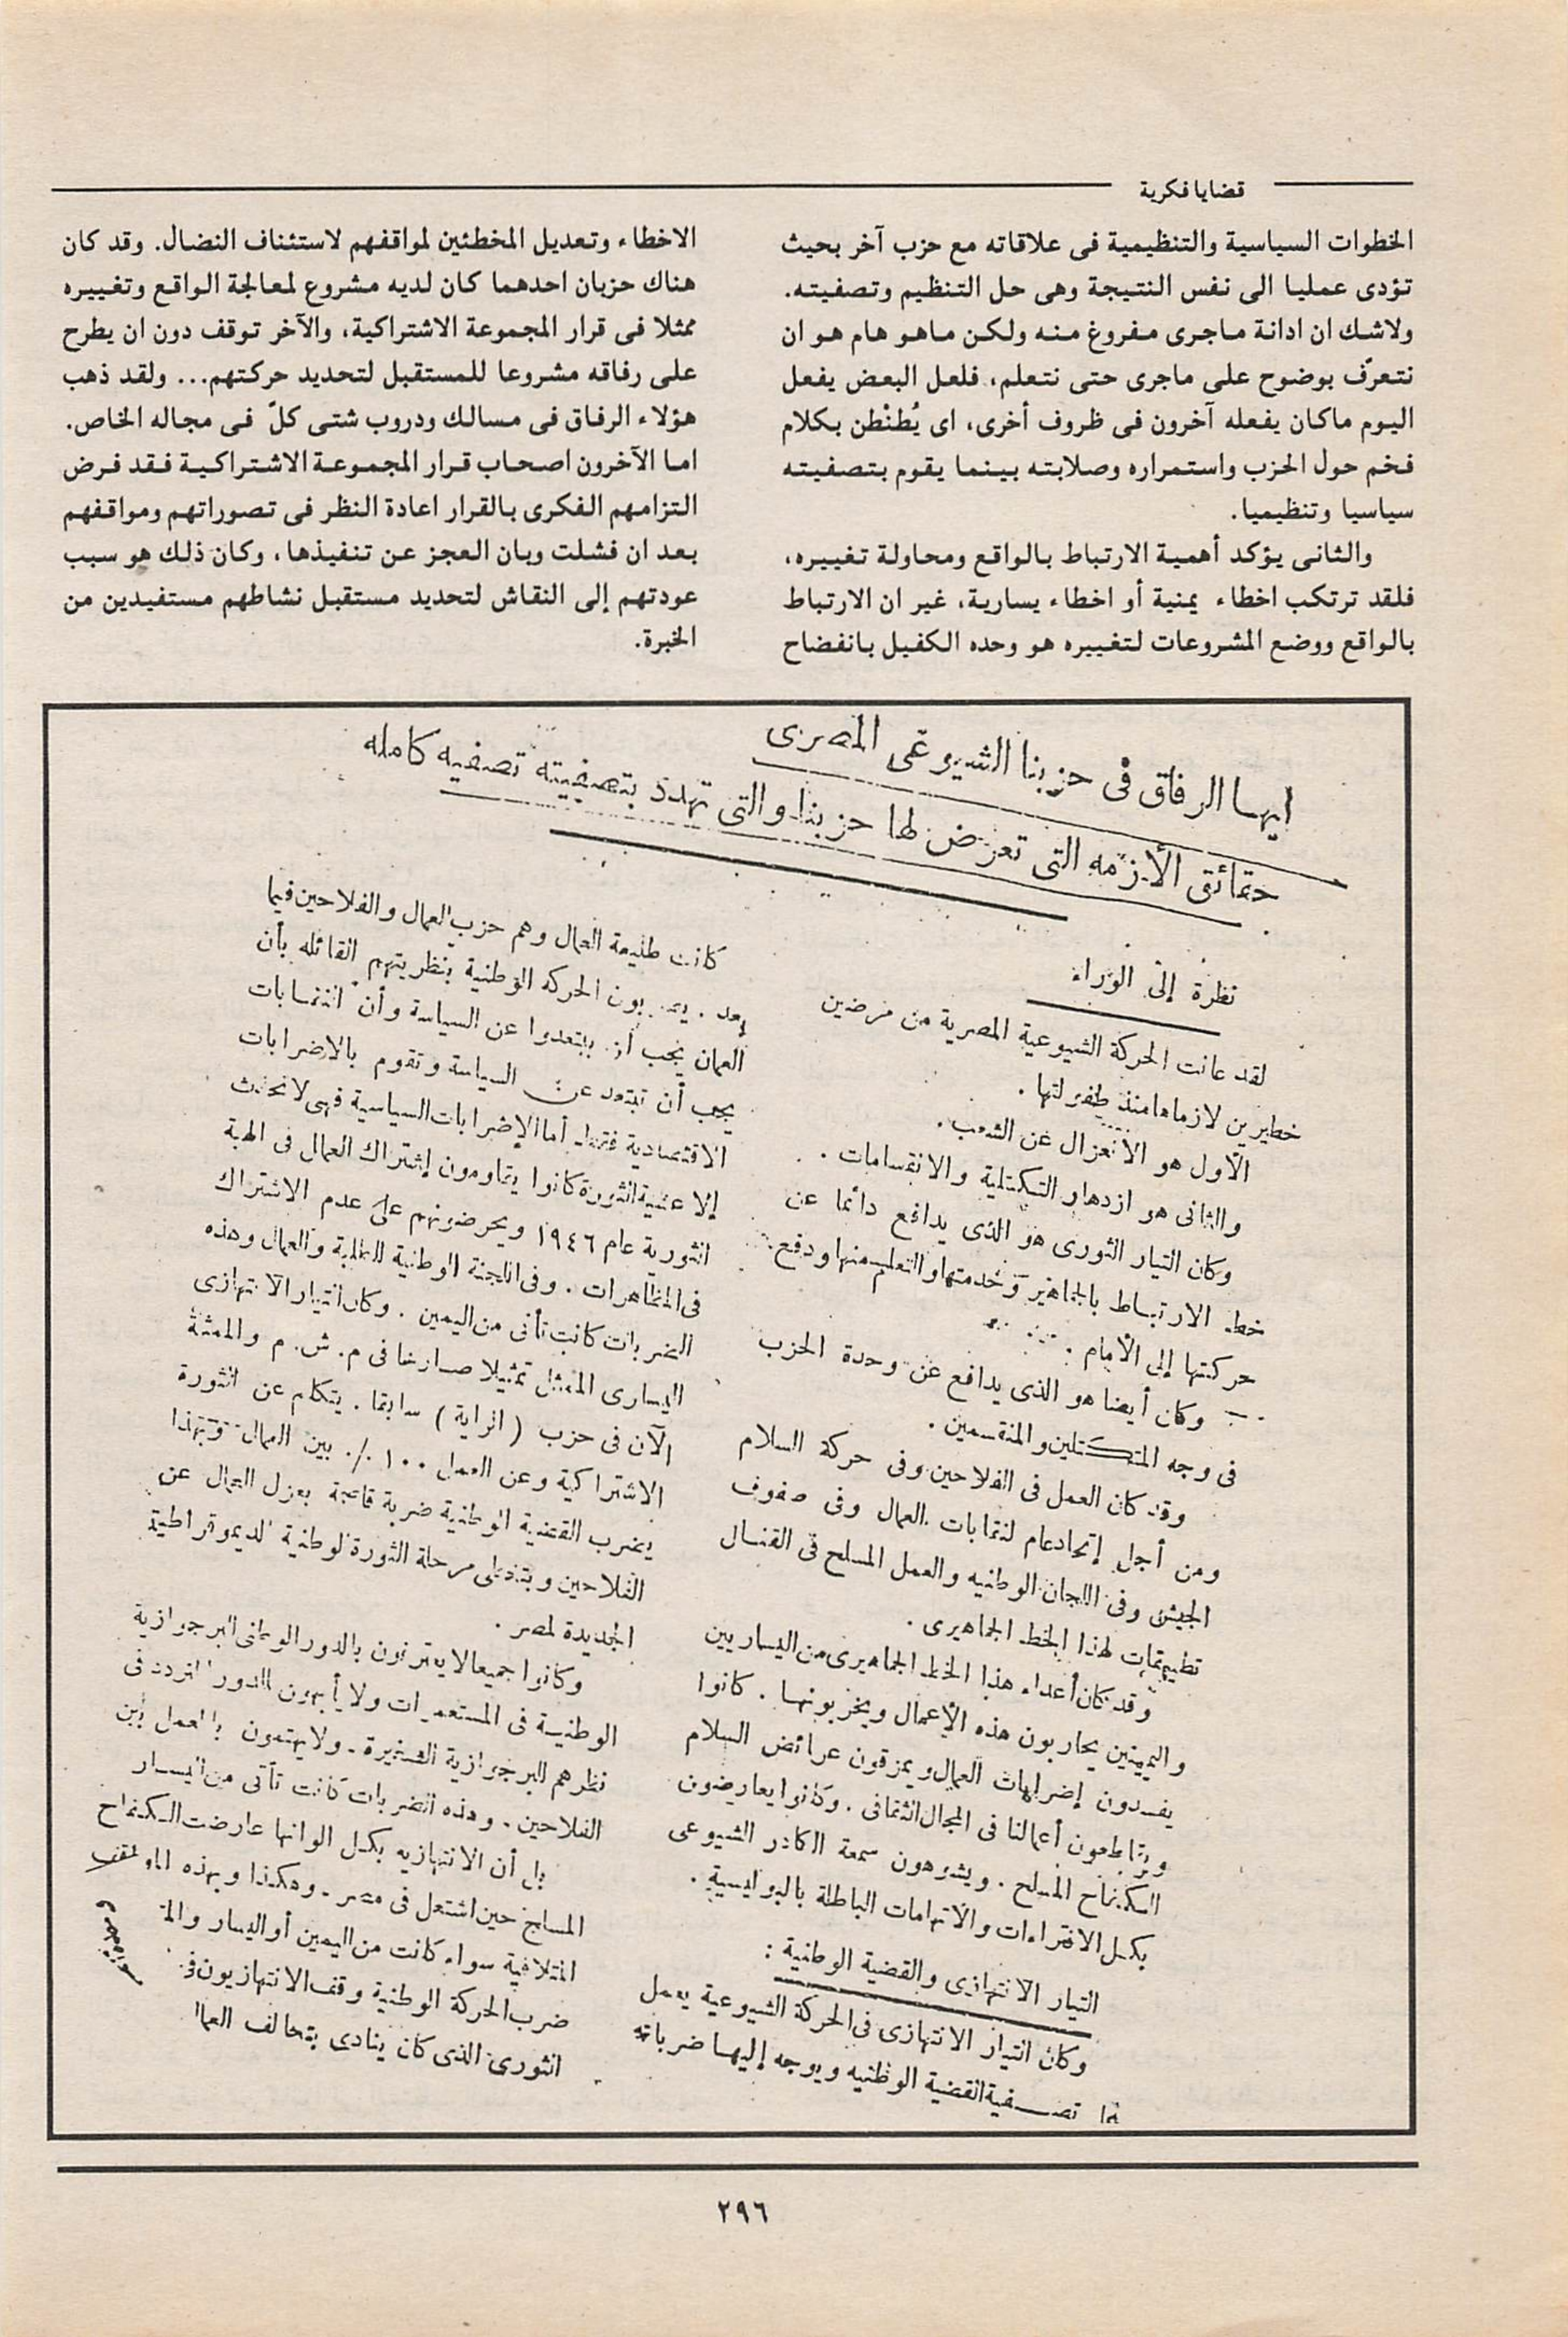 قضايا فكرية
الخطوات السياسية والتنظيمية فى علاقاته مع حزب آخر بحيث
تؤدى عمليا الى نفس النتيجة وهى حل التنظيم وتصفيته.
ولاشك ان ادانة ماجرى مفروغ منه ولكن ماهو هام هو ان
نتعرّف بوضوح على ماجرى حتى نتعلم، فلعل البعض يفعل
اليوم ماكان يفعله آخرون فى ظروف أخرى، اى يُطنْطن بكلام
فخم حول الحزب واستمراره وصلابته بينما يقوم بتصفيته
سياسيا وتنظيميا.
والثانى يؤكد أهمية الارتباط بالواقع ومحاولة تغييره،
فلقد ترتكب اخطاء يمنية أو اخطاء يسارية، غير ان الارتباط
بالواقع ووضع المشروعات لتغييره هو وحده الكفيل بانفضاح
الاخطاء وتعديل المخطئين لمواقفهم لاستئناف النضال. وقد كان
هناك حزبان احدهما كان لديه مشروع لمعالجة الواقع وتغييره
ممثلا فى قرار المجموعة الاشتراكية، والآخر توقف دون ان يطرح
على رفاقه مشروعا للمستقبل لتحديد حركتهم... ولقد ذهب
هؤلاء الرفاق فى مسالك ودروب شتى كلّ فى مجاله الخاص.
اما الآخرون اصحاب قرار المجموعة الاشتراكية فقد فرض
التزامهم الفكرى بالقرار اعادة النظر فى تصوراتهم ومواقفهم
بعد ان فشلت وبان العجز عن تنفيذها، وكان ذلك هو سبب
عودتهم إلى النقاش لتحديد مستقبل نشاطهم مستفيدين من
الخبرة.
ايها الرفاق فى حزبنا الشيوعى المصرى
حقائق الأزمه التى تعرض لها حزبنا والتى تهدد بتصفيته تصفيه كامله
نظرة إلى الوراء
لقد عانت الحركة الشيوعية المصرية من مرضين
خطيرين لازماها منذ طفولتها .
الأول هو الانعزال عن الشعب .
والثانى هو ازدهار التكتلية والانقسامات .
وكان التيار الثورى هو الذى يدافع دائما عن
خط الارتباط بالجماهير وخدمتها والتعلم منها ودفع
حركتها إلى الأمام .
وكان أيضا هو الذى يدافع عن وحدة الحزب
فى وجه المتكتلين والمنقسمين .
وقد كان العمل فى الفلاحين وفى حركة السلام
ومن أجل إتحاد عام لنقابات العمال وفى صفوف
الجيش وفى اللجان الوطنيه والعمل المسلح فى القنال
تطبيقات لهذا الخط الجماهيرى .
وقد كان أعداء هذا الخط الجماهيرى من اليساريين
واليمينين يحاربون هذه الإعمال ويخربونها . كانوا
يفسدون إضرابات العمال ويمزقون عرائض السلام
ويقاطعون أعمالنا فى المجال الثقافى . وكانوا يعارضون
الكفاح المسلح . ويشوهون سمعة الكادر الشيوعى
بكل الافتراءات والاتهامات الباطلة بالبوليسية .
التيار الانتهازى والقضية الوطنية :
وكان التيار الانتهازى فى الحركة الشيوعية يعمل
تصفية القضية الوطنيه ويوجه إليها ضرباته
كانت طليعة العمال وهم حزب العمال والفلاحين فيما
بعد . يضربون الحركه الوطنية بنظريتهم القائله بأن
العمال يجب أن يبتعدوا عن السياسة وأن النقابات
يجب أن تبتعد عن السياسة وتقوم بالاضرابات
الاقتصادية فقط . أما الإضرابات السياسية فهى لا تحدث
إلا عشية الثورة كانوا يقاومون إشتراك العمال فى الهبة
الثورية عام ١٩٤٦ ويحرضونهم على عدم الاشتراك
فى المظاهرات . وفى اللجنة الوطنية للطلبة والعمال وهذه
الضربات كانت تأتى من اليمين . وكان التيار الانتهازى
اليسارى الممثل تمثيلا صارخا فى م . ش . م والممثلة
الآن فى حزب ( الراية ) سابقا . يتكلم عن الثورة
الاشتراكية وعن العمل ١٠٠ ٪ بين العمال وبهذا
يضرب القضية الوطنية ضربة قاضية بعزل العمال عن
الفلاحين وبتخطى مرحلة الثورة الوطنية الديموقراطية
الجديدة لمصر .
وكانوا جميعا لا يعترفون بالدور الوطنى البرجوازية
الوطنية فى المستعمرات ولا يأبهون للدور المتردد فى
نظرهم للبرجوازية الصغيرة . ولا يهتمون بالعمل بين
الفلاحين . وهذه الضربات كانت تأتى من اليسار
بل أن الانتهازيه بكل الوانها عارضت الكفاح
المسلح حين اشتعل فى مصر . وهكذا وبهذه المواقف
المتلاقية سواء كانت من اليمين أو اليسار
ضرب الحركة الوطنية وقف الانتهازيون فى
الثورى الذى كان ينادى بتحالف العمال
٢٩٦